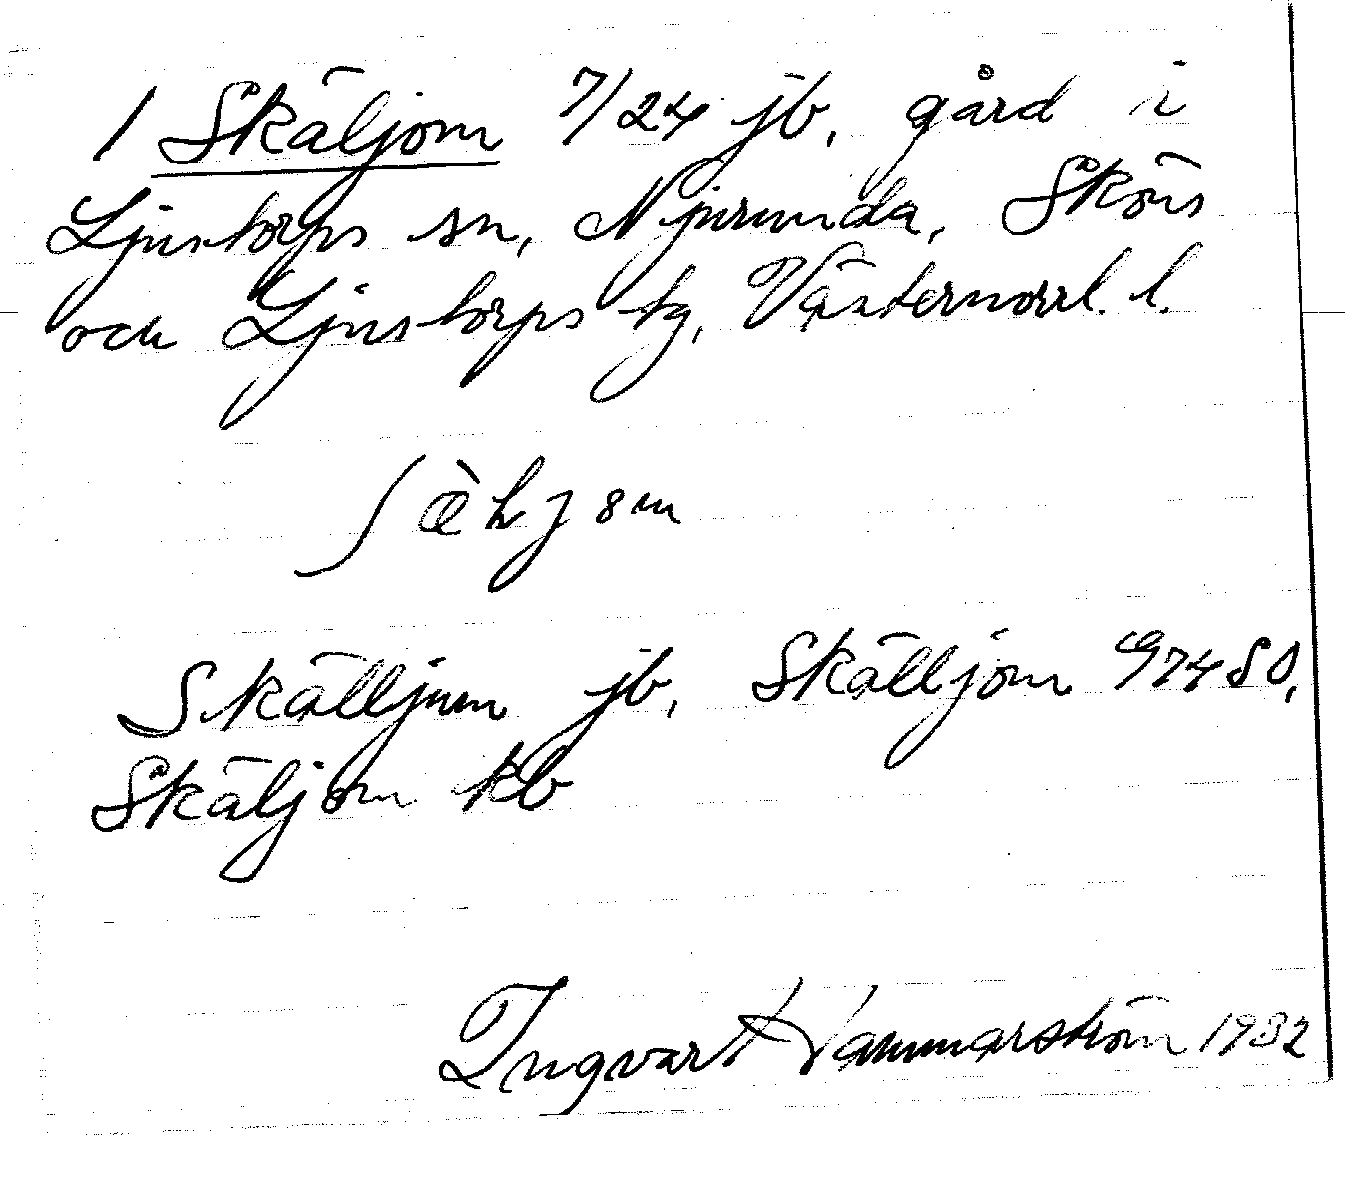 1 Skäljom 7/24 jb, gård i
Ljustorps sn, Njurunda, Sköns
och Ljustorps tg, Västernorrl. l.
Skälljum jb, Skälljom GA
Skäljom kb
Ingvart Hammarström 1932